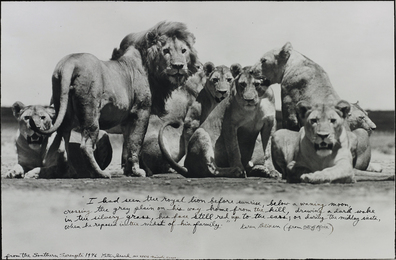 I had seen the royal lion before sunrise, below a waning moon,
crossing the grey plain on his way home from the kill, drawing a dark wake
in the silvery grass, his face still red up to the ears, or during the midday siesta,
when he reposed in the midst of his family.
(from
from the Southern Serengeti 1976